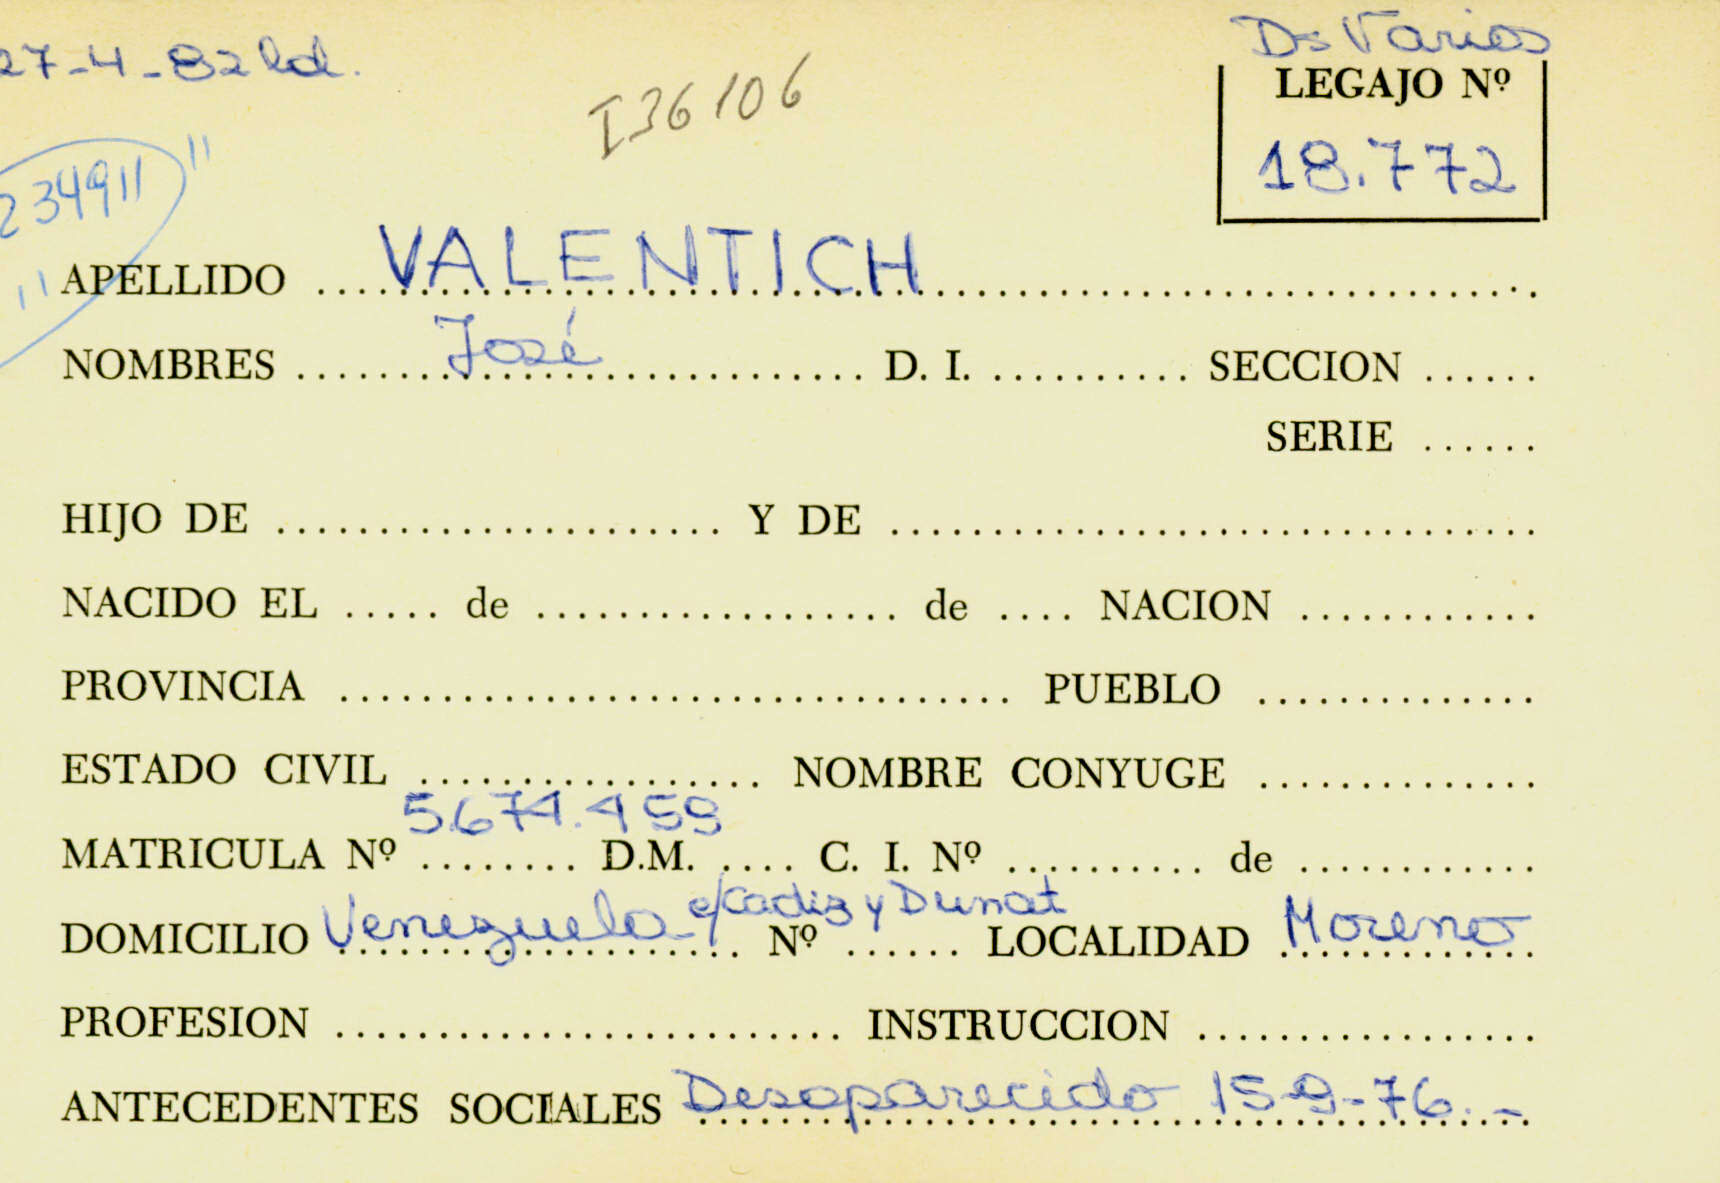 27-4-82 ld.
Ds Varios
I36106
LEGAJO Nº
18.772
23491
APELLIDO VALENTICH
NOMBRES José D. I. SECCION
SERIE
HIJO DE Y DE
NACIDO EL de de NACION
PROVINCIA PUEBLO
ESTADO CIVIL NOMBRE CONYUGE
MATRICULA Nº 5.674.459 D.M. C. I. Nº de
DOMICILIO Venezuela e/Cadiz y Dunat Nº LOCALIDAD Moreno
PROFESION INSTRUCCION
ANTECEDENTES SOCIALES Desaparecido 15-9-76.-